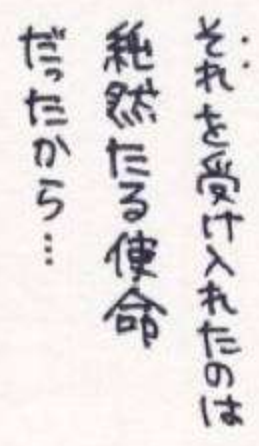 それを受け入れたのは
純然たる使命
だったから…